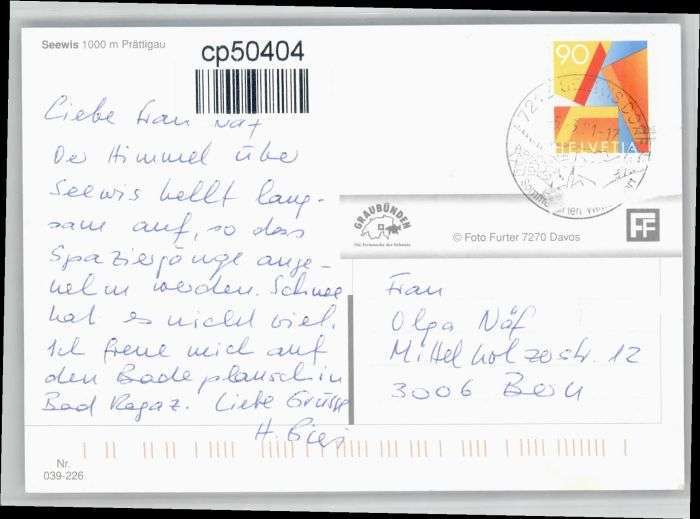 Seewis 1000 m Prättigau
cp50404
Liebe Frau Näf
Der Himmel über
Seewis hellt lang-
sam auf, so dass
Spaziergänge ange-
nehm werden. Schnee
hat es nicht viel.
Ich freue mich auf
den Badeplausch in
Bad Ragaz. Liebe Grüsse
H.
90
HELVETIA
GRAUBÜNDEN
Die Ferienecke der Schweiz
© Foto Furter 7270 Davos
FF
Frau
Olga Näf
Mittelholzerstr. 12
3006 Bern
Nr.
039-226